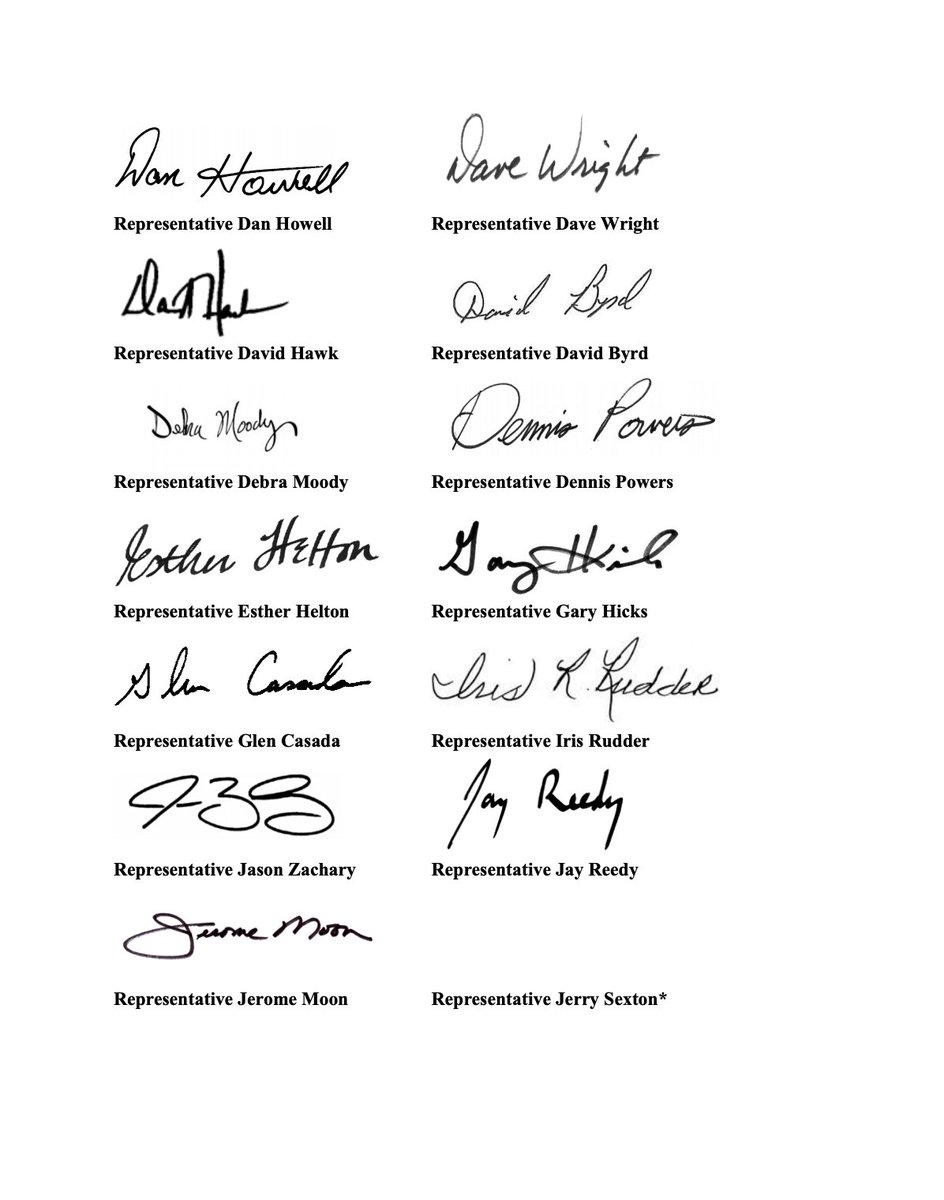 Dan Howell Dave Wright
Representative Dan Howell Representative Dave Wright
David Hawk David Byrd
Representative David Hawk Representative David Byrd
Debra Moody Dennis Powers
Representative Debra Moody Representative Dennis Powers
Esther Helton Gary Hicks
Representative Esther Helton Representative Gary Hicks
Glen Casada Iris R. Rudder
Representative Glen Casada Representative Iris Rudder
Jay Reedy
Representative Jason Zachary Representative Jay Reedy
Jerome Moon
Representative Jerome Moon Representative Jerry Sexton*